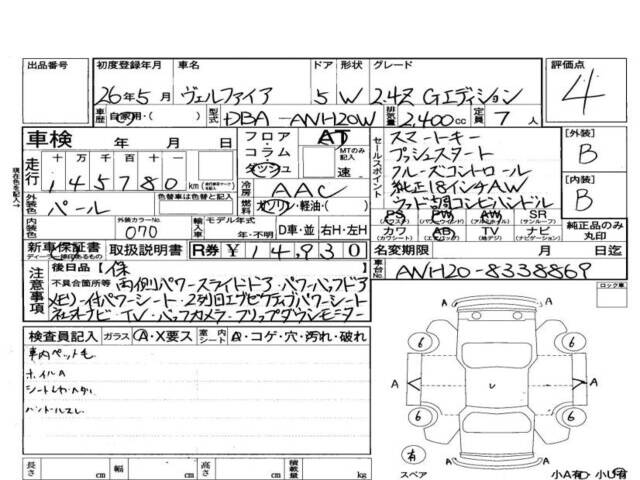 出品番号
初度登録年月 車名 ドア 形状 グレード 評価点
26年5月 ヴェルファイア 5 W 2.4Z Gエディション 4
車歴 自家用・( ) 型式 DBA-ANH20W 排気量 2,400cc 定員 7人
車検 年 月 日
フロア・コラム・ダッシュ AT
MTのみ記入 速
セールスポイント
スマートキー
プッシュスタート
クルーズコントロール
純正18インチAW
ウッド調コンビハンドル
[外装] B
[内装] B
走行 十 万 千 百 十
145780 km
冷房 AAC
外装色 パール
色替車は色替と記入
燃料 ガソリン・軽油・( )
PS PW AW SR
(パワステ) (パワーウィンド) (アルミホイル) (サンルーフ)
カワ AB TV ナビ
(カワシート) (エアバッグ) (地デジ) (ナビゲーション)
純正品のみ丸印
内装色
外装カラーNo 070
輸入車 モデル年式 年・不明 D車・並 右H・左H
新車保証書 取扱説明書 R券 ¥14,930
名変期限 月 日迄
車台No ANH20-8338869
注意事項
後日品 [保 ]
不具合箇所等 両側パワースライドドア・パワーバックドア
メモリー付パワーシート・2列目エグゼクティブパワーシート
社外ナビ・TV・バックカメラ・フリップダウンモニター
ロック車
検査員記入 ガラス A・X要ス 室内シート A・コゲ・穴・汚れ・破れ
車内ペット毛
ホイルA
ハンドルスレ
A A
6 6
A A
6 6
A A
有
スペア
長さ cm 幅 cm 高さ cm 積載量 kg
小A有 ・小U有